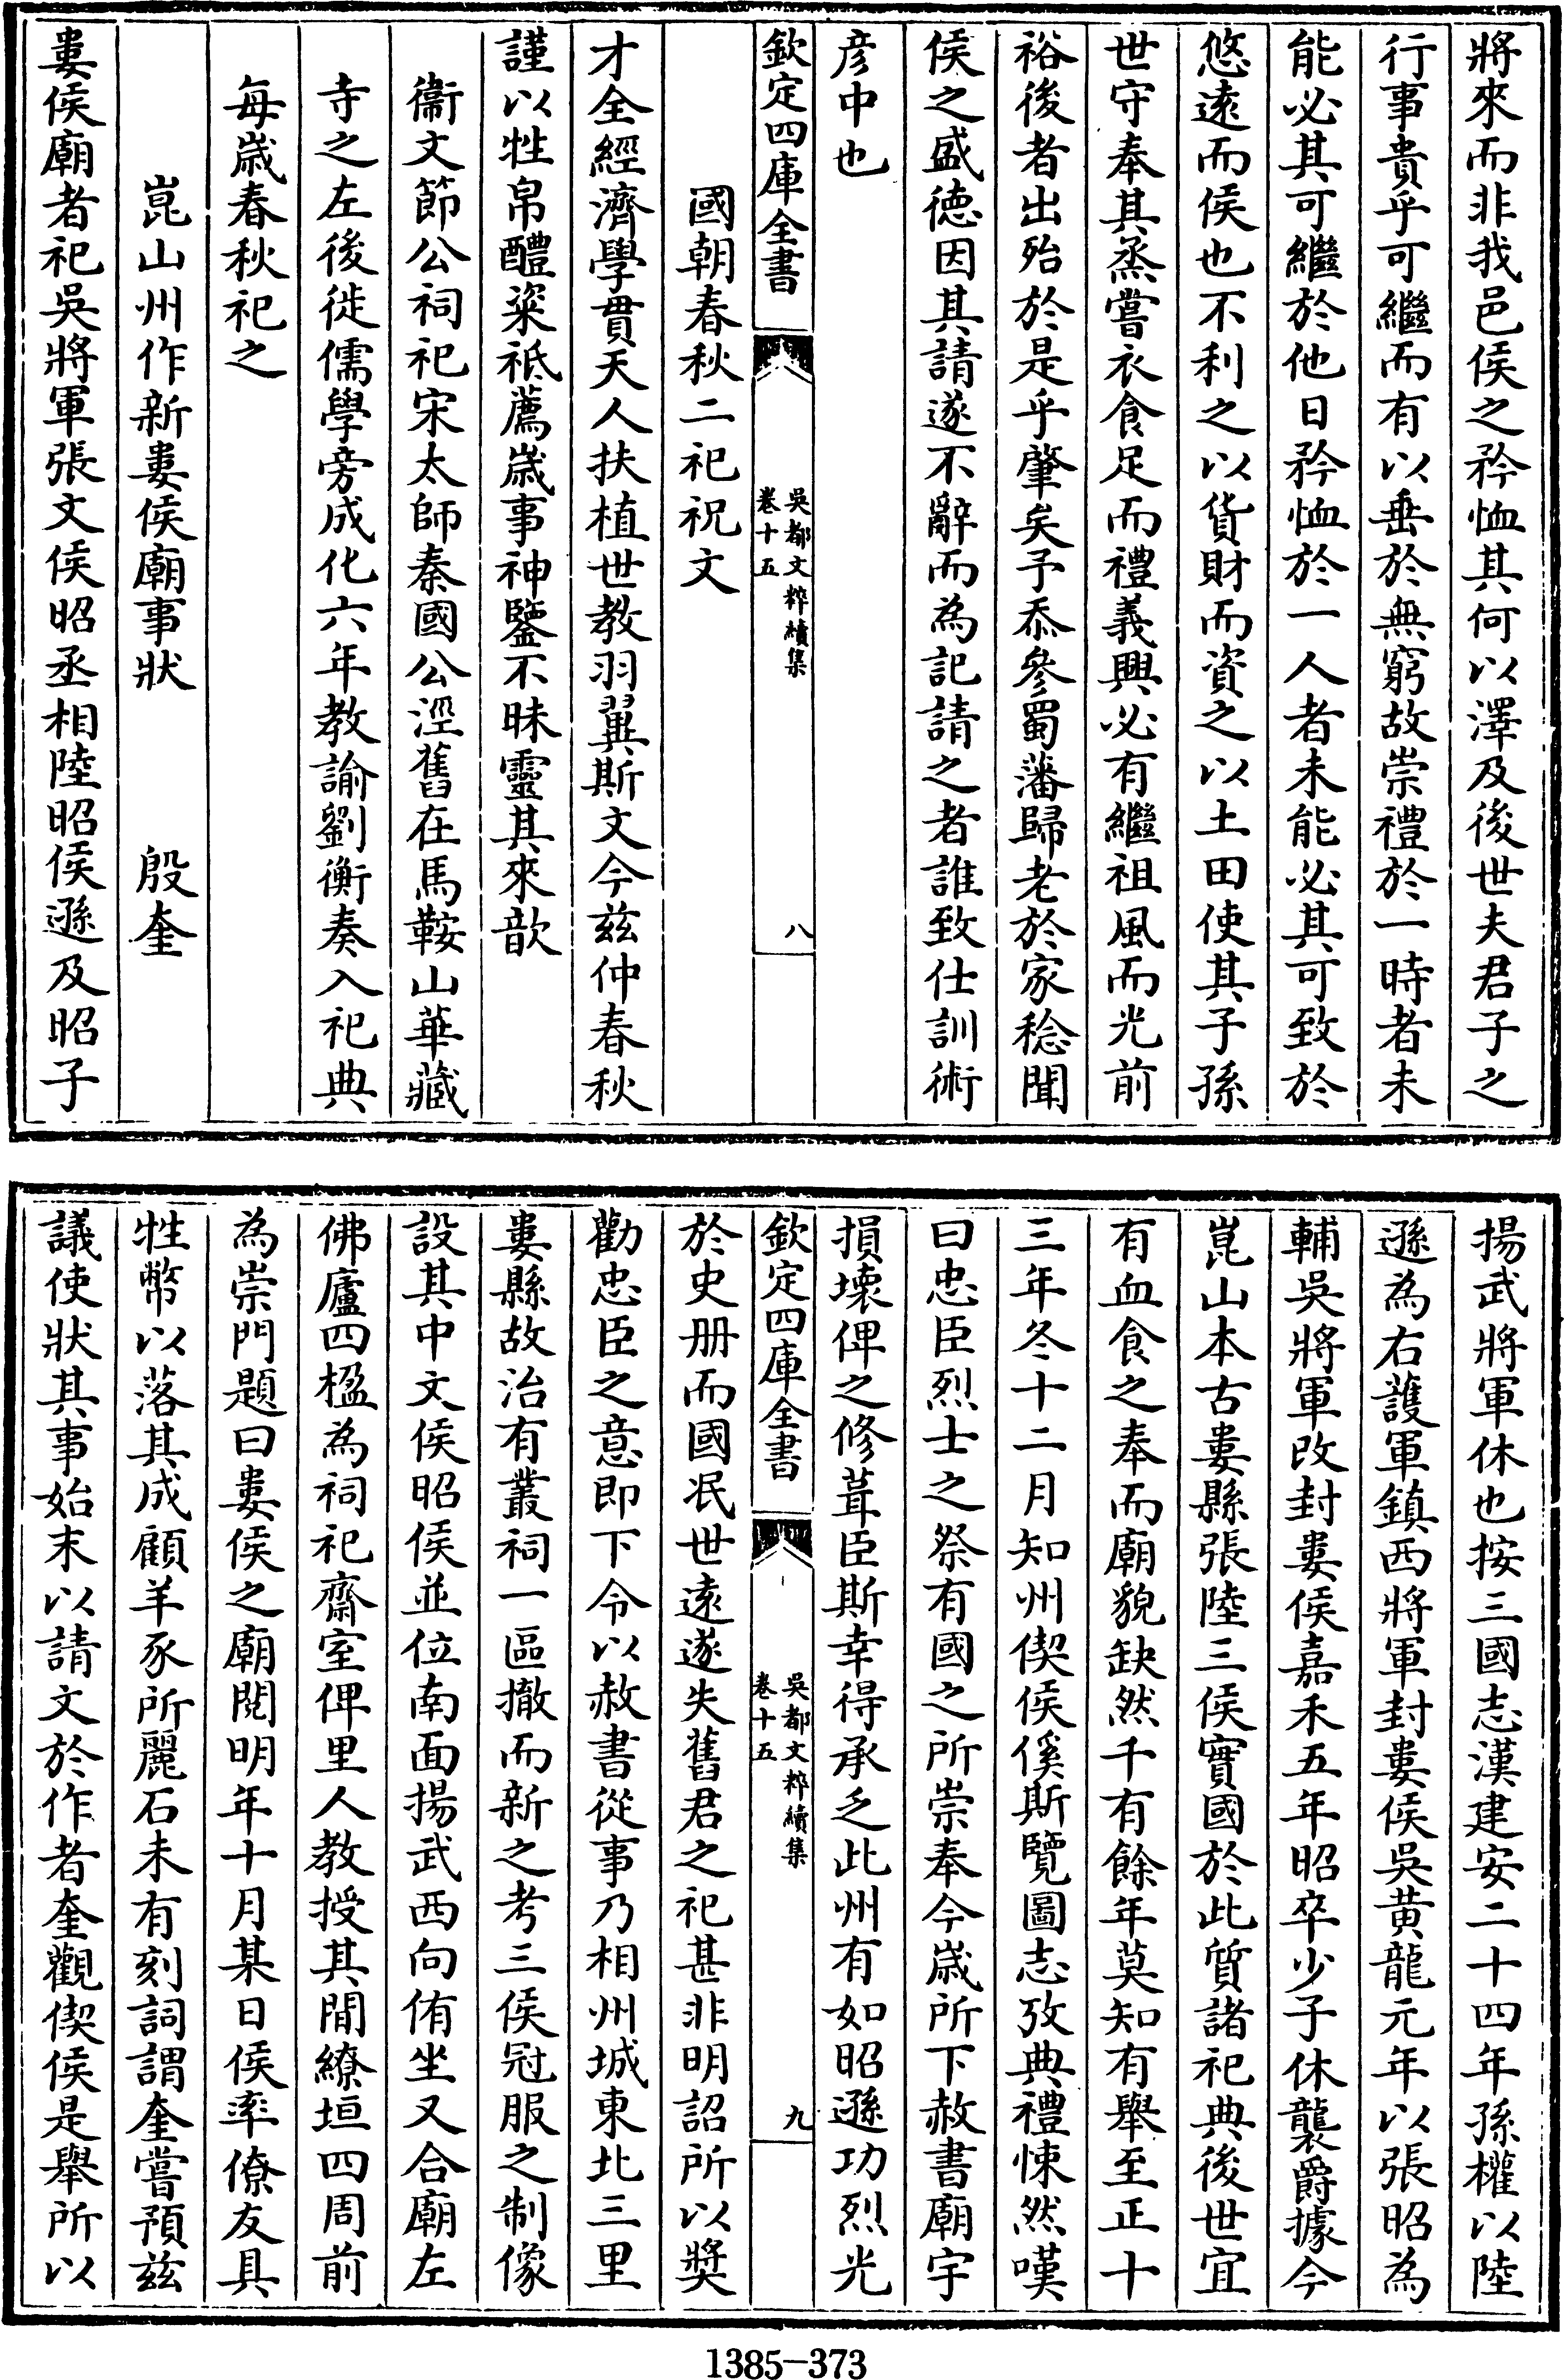 將來而非我邑侯之矜恤其何以澤及後世夫君子之
行事貴乎可繼而有以垂於無窮故崇禮於一時者未
能必其可繼於他日矜恤於一人者未能必其可致於
悠遠而侯也不利之以貨財而資之以土田使其子孫
世守奉其烝嘗衣食足而禮義興必有繼祖風而光前
裕後者出殆於是乎肇矣予忝參蜀藩歸老於家稔聞
侯之盛徳因其請遂不辭而為記請之者誰致仕訓術
彦中也
欽定四庫全書
吳都文粹續集
卷十五
八
國朝春秋二祀祝文
才全經濟學貫天人扶植世教羽翼斯文今兹仲春秋
謹以牲帛醴粢祗薦歳事神鑒不昧靈其來歆
衞文節公祠祀宋太師秦國公涇舊在馬鞍山華藏
寺之左後徙儒學旁成化六年教諭劉衡奏入祀典
每歳春秋祀之
崑山州作新婁侯廟事狀
殷奎
婁侯廟者祀吳將軍張文侯昭丞相陸昭侯遜及昭子
揚武將軍休也按三國志漢建安二十四年孫權以陸
遜為右護軍鎮西將軍封婁侯吳黄龍元年以張昭為
輔吳將軍改封婁侯嘉禾五年昭卒少子休襲爵據今
崑山本古婁縣張陸三侯實國於此質諸祀典後世宜
有血食之奉而廟貌缺然千有餘年莫知有舉至正十
三年冬十二月知州偰侯傒斯覽圖志攷典禮悚然嘆
曰忠臣烈士之祭有國之所崇奉今歳所下赦書廟宇
損壞俾之修葺臣斯幸得承乏此州有如昭遜功烈光
欽定四庫全書
吳都文粹續集
卷十五
九
於史册而國冺世逺遂失舊君之祀甚非明詔所以奬
勸忠臣之意即下令以赦書從事乃相州城東北三里
婁縣故治有叢祠一區撤而新之考三侯冠服之制像
設其中文侯昭侯並位南面揚武西向侑坐又合廟左
佛廬四楹為祠祀齋室俾里人教授其間繚垣四周前
為崇門題曰婁侯之廟閲明年十月某日侯率僚友具
牲幣以落其成顧羊豕所麗石未有刻詞謂奎嘗預兹
議使狀其事始末以請文於作者奎觀偰侯是舉所以
1385-373